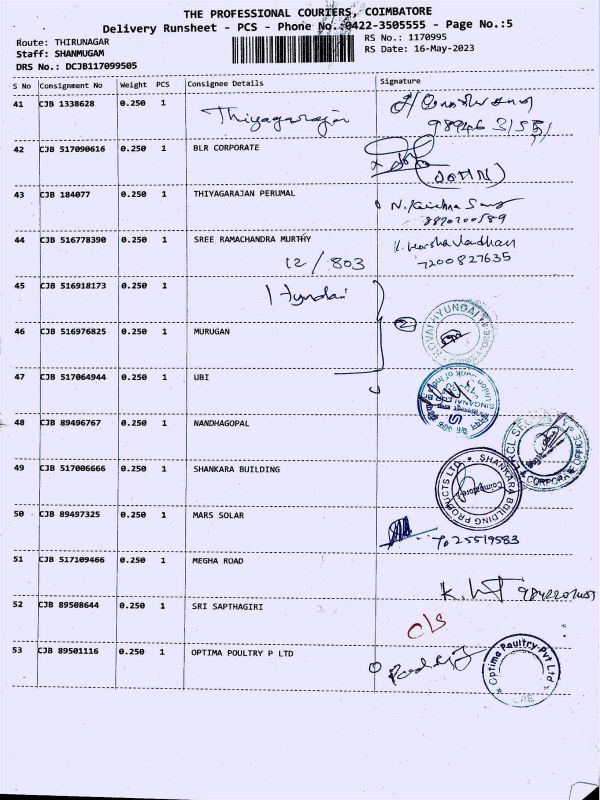 THE PROFESSIONAL COURIERS, COIMBATORE
Delivery Runsheet - PCS - Phone No.:0422-3505555 - Page No.:5
Route: THIRUNAGAR
RS No.: 1170995
Staff: SHANMUGAM
RS Date: 16-May-2023
DRS No.: DCJB117099505
S No Consignment No Weight PCS Consignee Details Signature
41 CJB 1338628 0.250 1 Thiyagarajan
42 CJB 517090616 0.250 1 BLR CORPORATE
(JOHN)
43 CJB 184077 0.250 1 THIYAGARAJAN PERUMAL
44 CJB 516778390 0.250 1 SREE RAMACHANDRA MURTHY
12/803
7200827635
45 CJB 516918173 0.250 1 Hyundai
46 CJB 516976825 0.250 1 MURUGAN
2
47 CJB 517064944 0.250 1 UBI
48 CJB 89496767 0.250 1 NANDHAGOPAL
CORPORATE OFFICE
49 CJB 517006666 0.250 1 SHANKARA BUILDING
SHANKARA BUILDING PRODUCTS LTD.
Coimbatore
50 CJB 89497325 0.250 1 MARS SOLAR
7025519583
51 CJB 517109466 0.250 1 MEGHA ROAD
52 CJB 89508644 0.250 1 SRI SAPTHAGIRI
C/S
53 CJB 89501116 0.250 1 OPTIMA POULTRY P LTD
Optima Poultry Pvt Ltd
CBE